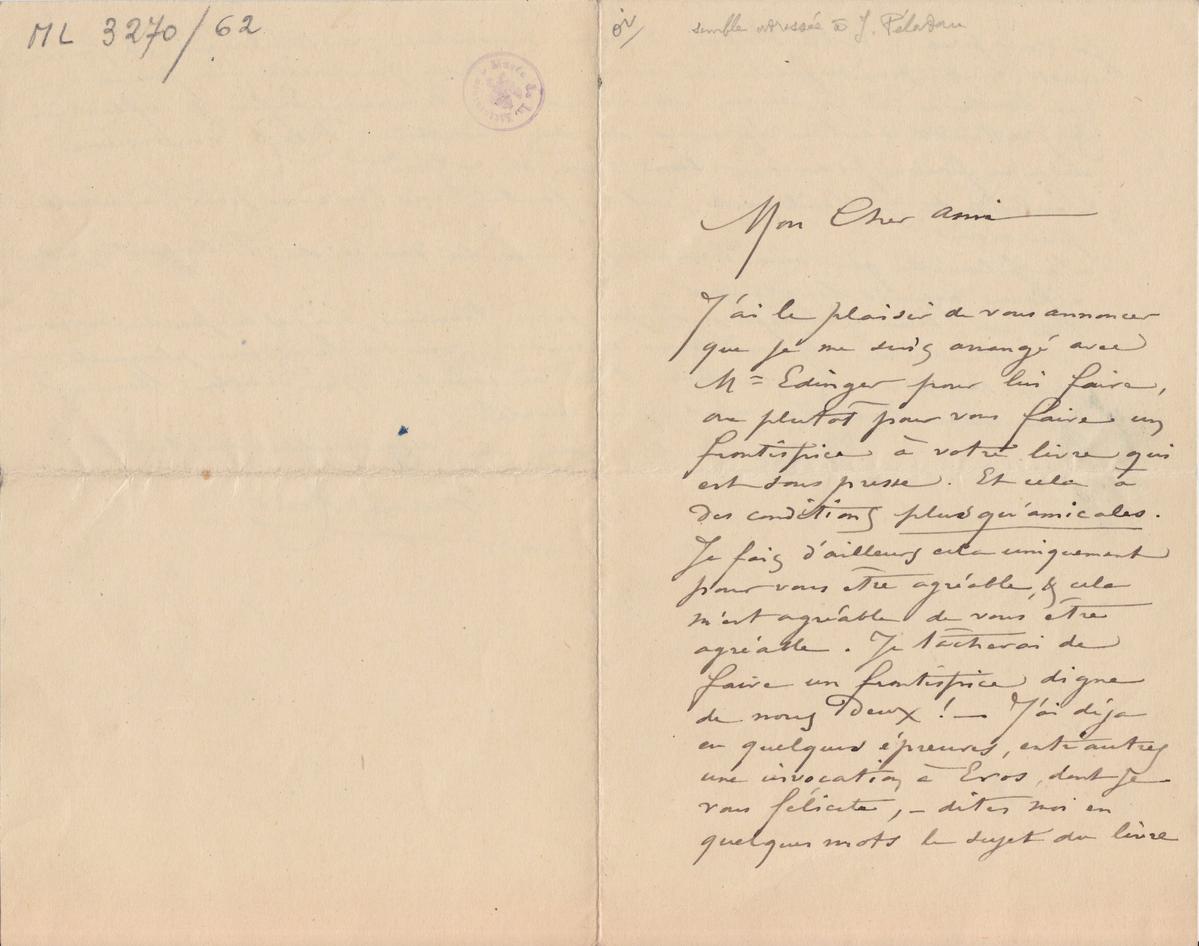 ML 3270/62
Musée de la Littérature
semble adressée à J. Péladan
Mon Cher ami
J'ai le plaisir de vous annoncer
que je me suis arrangé avec
Mr Edinger pour lui faire,
ou plutôt pour vous faire un
frontispice à votre livre qui
est sous presse. Et cela à
des conditions plus qu'amicales.
Je fais d'ailleurs cela uniquement
pour vous être agréable, & cela
m'est agréable de vous être
agréable. Je tâcherai de
faire un frontispice digne
de nous Deux ! — J'ai déja
eu quelques épreuves, entr'autres
une invocation à Eros, dont je
vous félicite, – dites moi en
quelques mots le sujet du livre